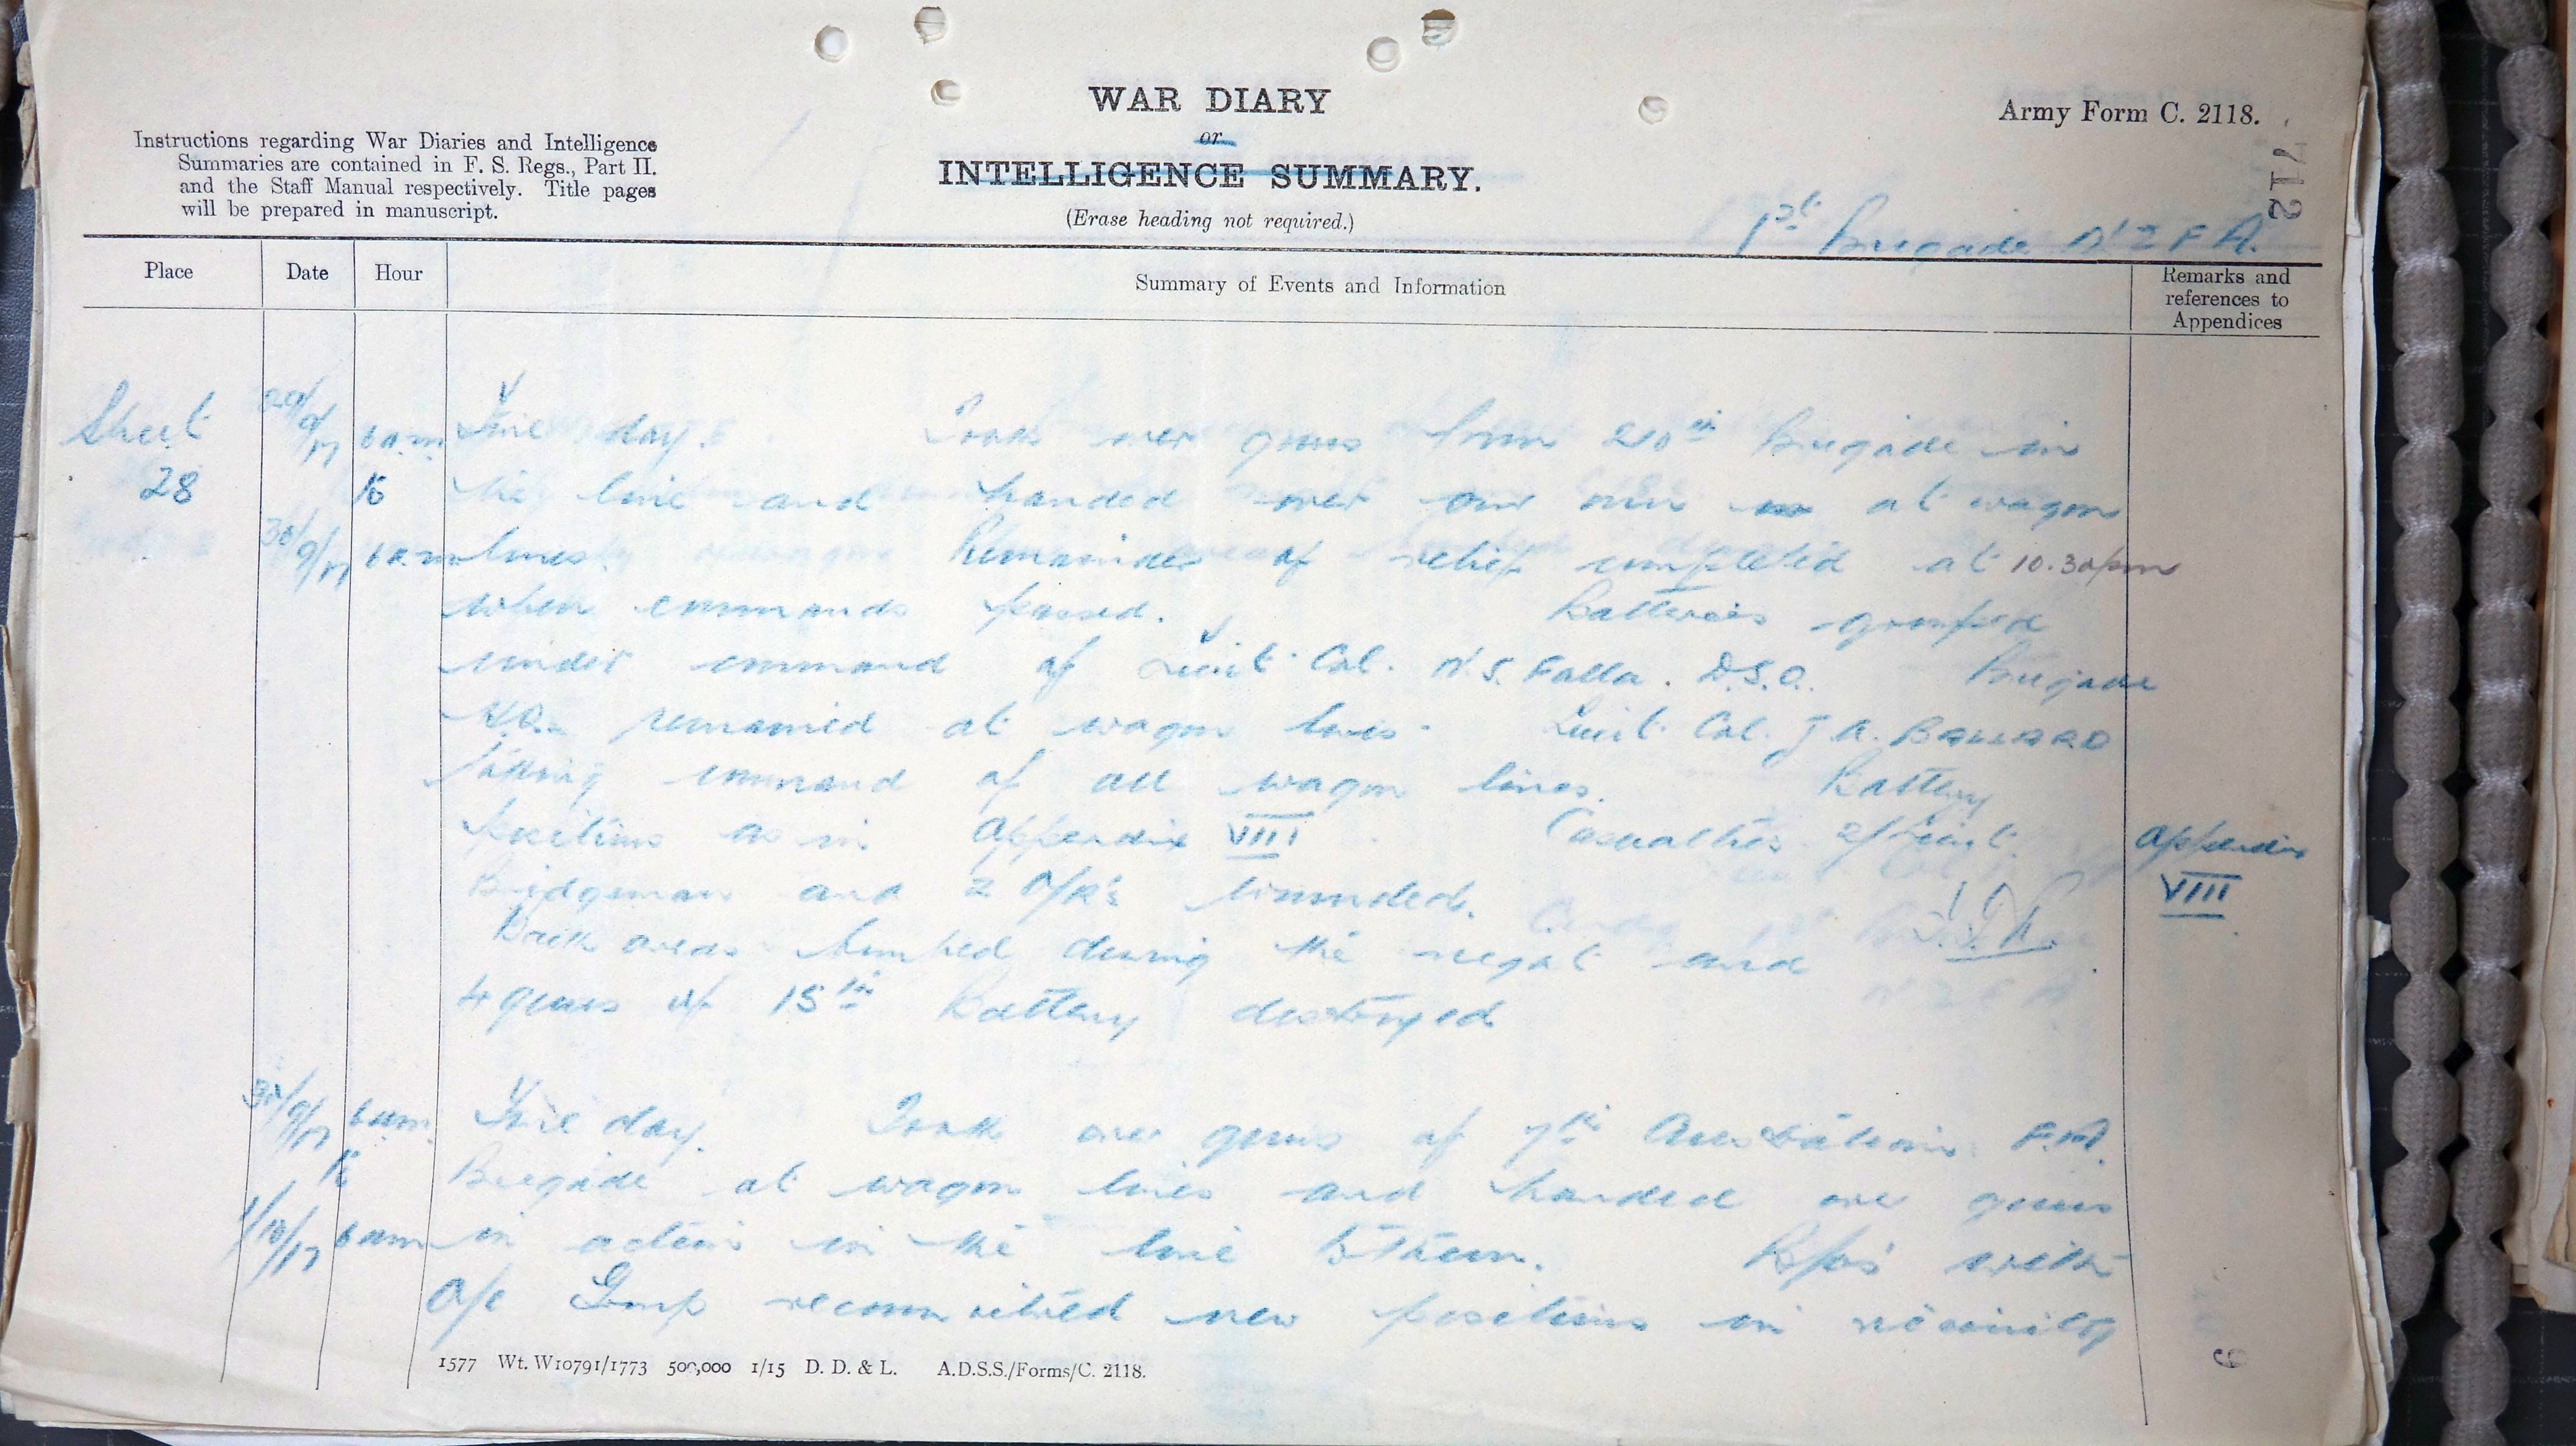 WAR DIARY
or
INTELLIGENCE SUMMARY.
(Erase heading not required.)
Army Form C. 2118.
Instructions regarding War Diaries and Intelligence
Summaries are contained in F. S. Regs., Part II.
and the Staff Manual respectively. Title pages
will be prepared in manuscript.
712
1st Brigade NZFA.
Place Date Hour Summary of Events and Information Remarks and
references to
Appendices
Sheet 29/9/17 6am Fine day. Took over guns from 210th Brigade in
28 to the line and handed over our own at wagon
30/9/17 6am lines. Remainder of relief completed at 10.30pm
when commands passed. Batteries grouped
under command of Lieut. Col. N.S. Falla. D.S.O. Brigade
H.Q. remained at wagon lines. Lieut. Col. BALLARD
taking command of all wagon lines. Battery
positions as in Appendix VIII. Casualties 2/Lieut. Appendix
Bridgeman and 2 O/R's wounded. VIII
Back areas bombed during the night and
4 guns of 15th Battery destroyed
30/9/17 6am. Fine day. Took over guns of 7th Australian F.A.
to Brigade at wagon lines and handed over guns
1/10/17 6am in action in the line to them. with
O/C Group reconnoitred new positions in vicinity
1577 Wt. W10791/1773 500,000 1/15 D. D. & L. A.D.S.S./Forms/C. 2118.